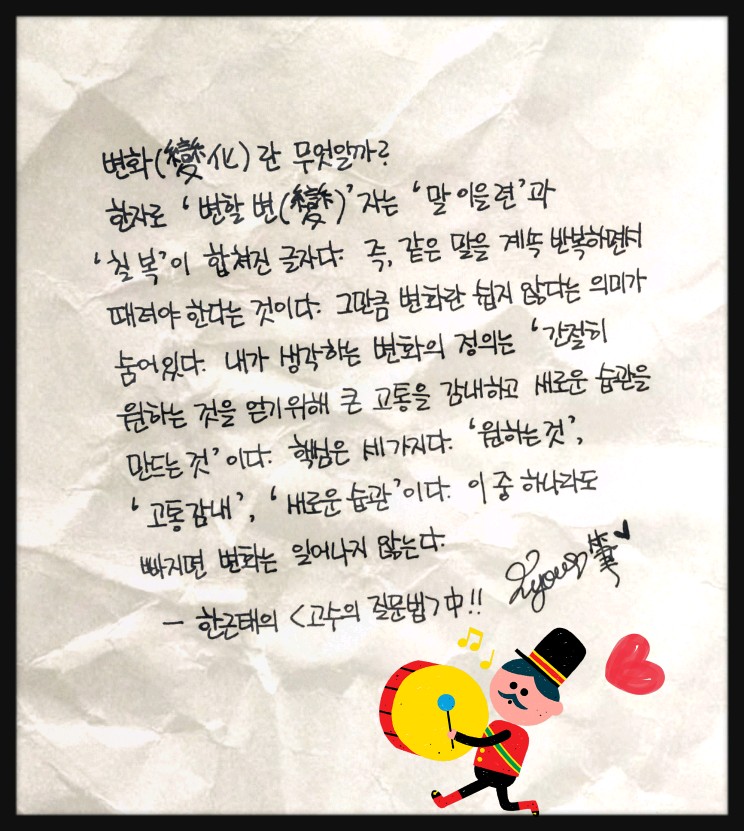 변화(變化)란 무엇일까?
한자로 '변할 변(變)'자는 '말 이을 련'과
'칠 복'이 합쳐진 글자다. 즉, 같은 말을 계속 반복하면서
때려야 한다는 것이다. 그만큼 변화란 쉽지 않다는 의미가
숨어있다. 내가 생각하는 변화의 정의는 '간절히
원하는 것을 얻기위해 큰 고통을 감내하고 새로운 습관을
만드는 것'이다. 핵심은 세가지다. '원하는 것',
'고통감내', '새로운 습관'이다. 이 중 하나라도
빠지면 변화는 일어나지 않는다.
- 한근태의 <고수의 질문법>中!!